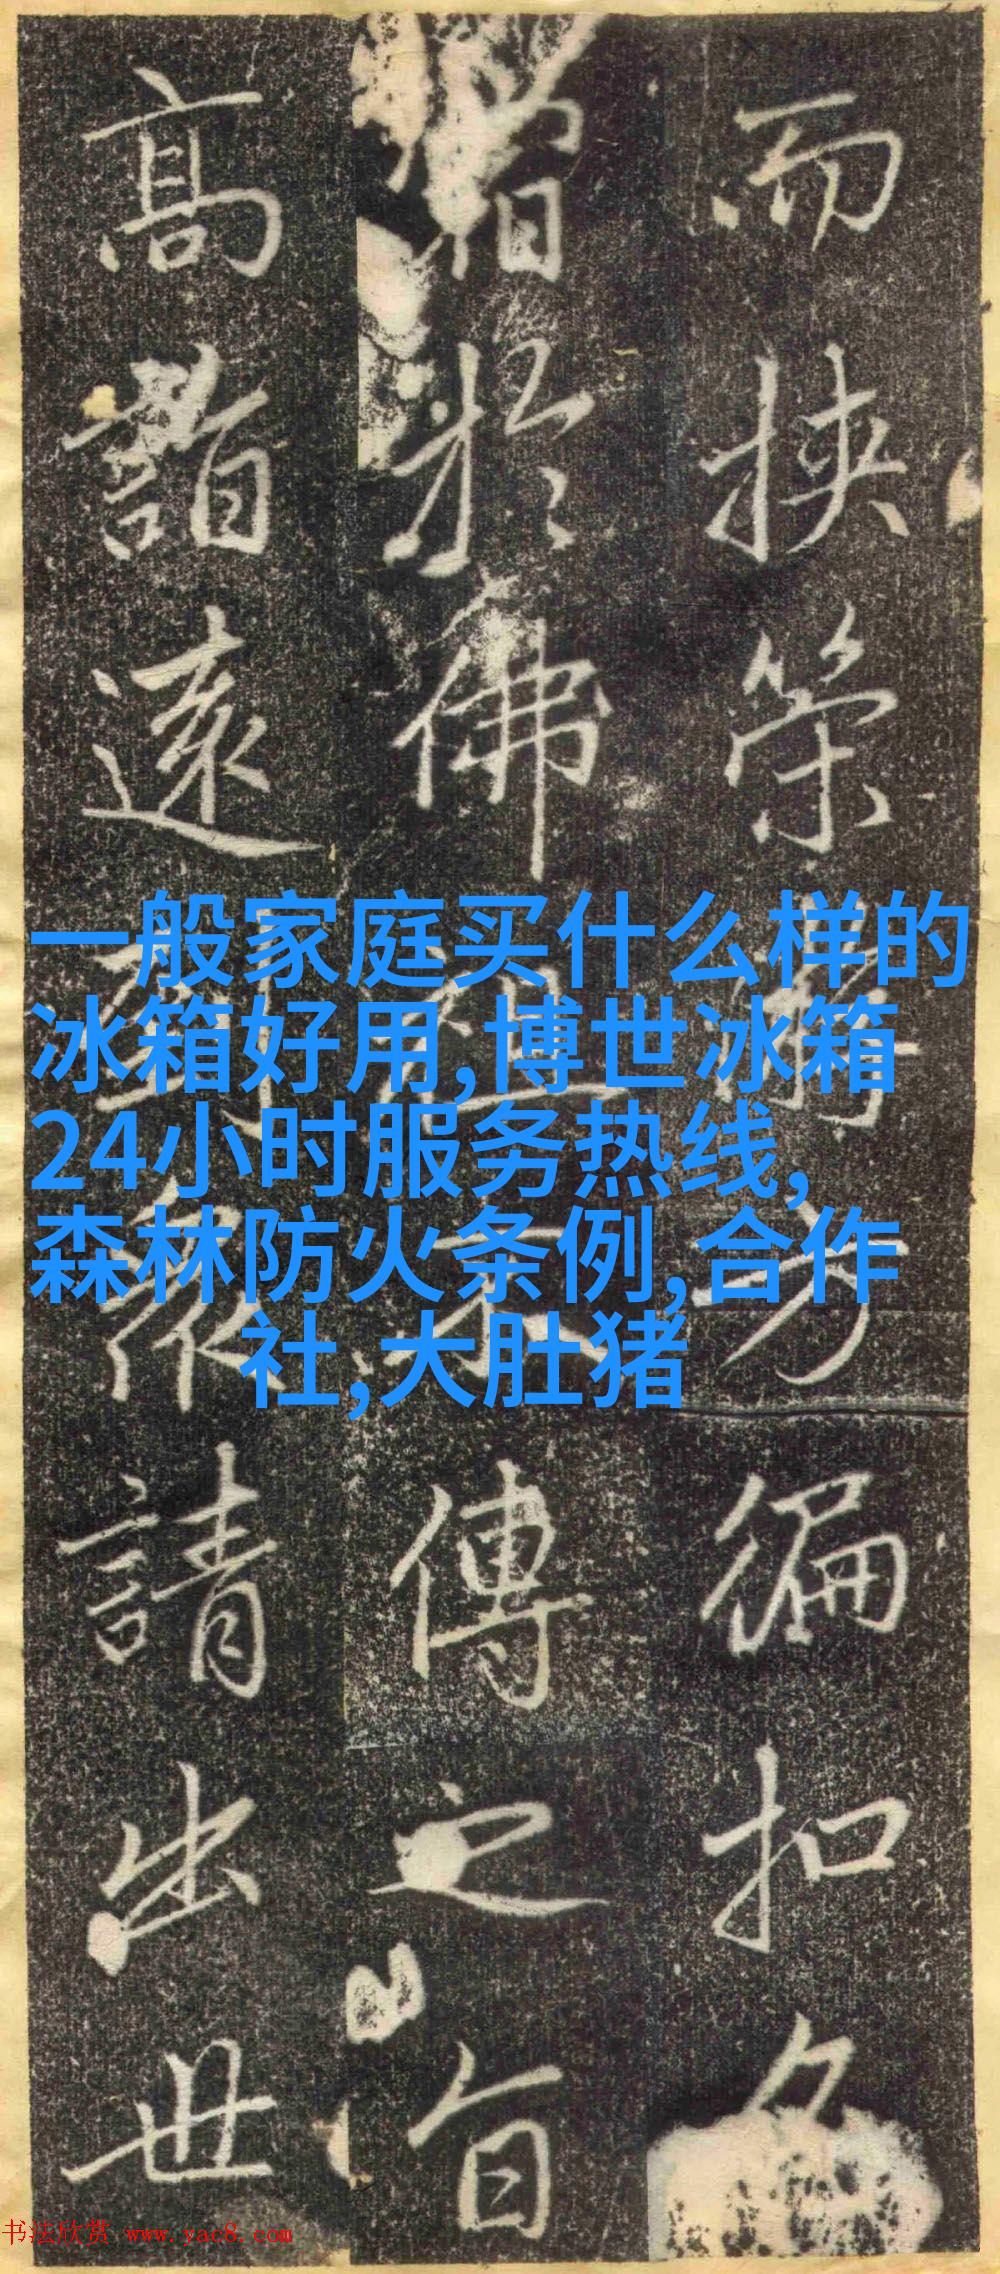 而挾策方徧扣
於佛祖不傳之旨
高詣遠到衆請出世
一般家庭买什么样的
冰箱好用,博世冰箱
24小时服务热线,
森林防火条例,合作
社,大肚猪
书法欣赏 www.yac8.com